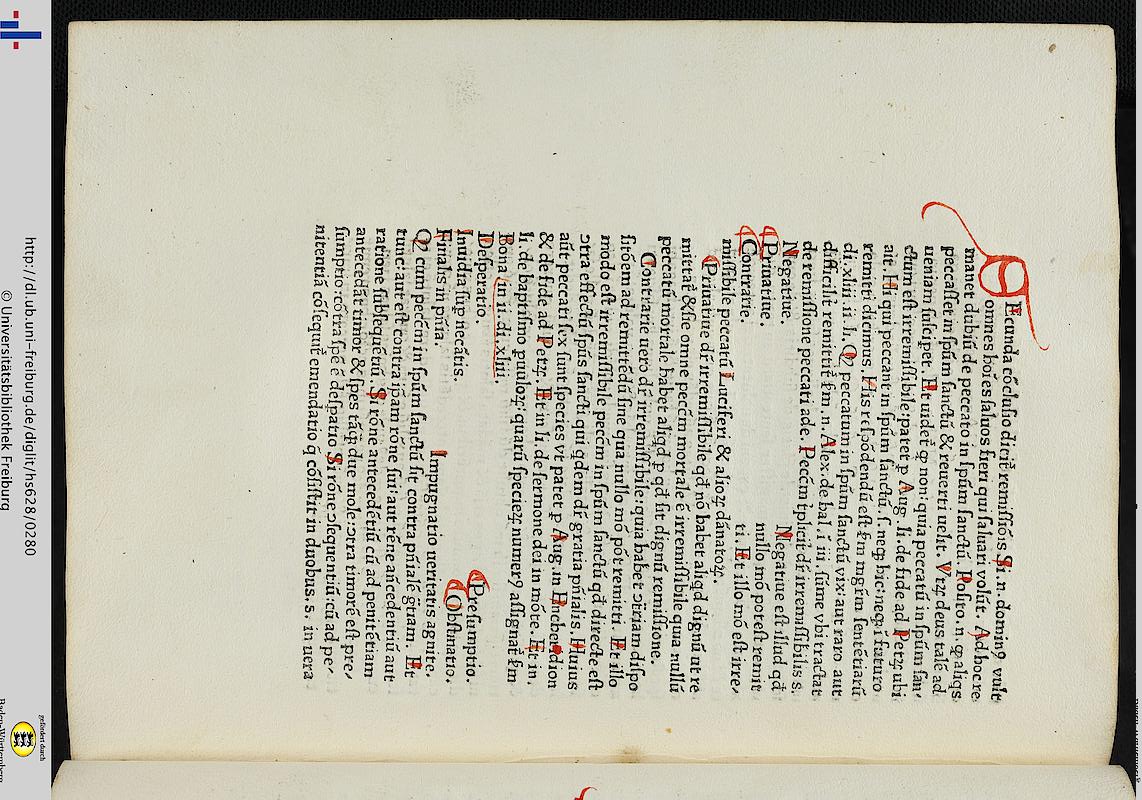 Ecunda cõclusio dicit̃ remissiõis. Si. n. dominꝰ vult
omnes hoĩes saluos fieri qui saluari volũt. Ad hoc re
manet dubiũ de peccato in spũm sanctũ. Posito. n. ꝙ aliqs
peccasset in spũm sanctũ & reuerti uelit. Vtrꝝ deus talẽ ad
ueniam suscipet. Et uidet̃ ꝙ non: quia peccatũ in spũm san
ctum est irremissibile: patet p Aug. li. de fide ad Petrꝝ ubi
ait. Hi qui peccant in spũm sanctũ. s. neqȝ hic: neqȝ ĩ futuro
remitti dicimus. His respõdendũ est f̃m mgr̃m sentẽtiarũ
di. xliii. ii. li. Qȝ peccatum in spũm sanctũ vix: aut raro aut
difficilit̃ remittit̃ f̃m. n. Alex. de hal. i iii. sũme vbi tractat
de remissione peccati ade. Peccm̃ tplicit̃ dr̃ irremissibilis s.
Negatiue.
Priuatiue.
Contrarie.
Negatiue est illud qd̃
nullo mõ potest remit
ti. Et illo mõ est irre,
missibile peccatũ Luciferi & alioꝝ dãnatoꝝ.
Priuatiue dr̃ irremissibile qd̃ nõ habet aliqd dignũ ut re
mittat̃ & sic omne peccm̃ mortale ẽ irremissibile quia nullũ
peccatũ mortale habet aliqd p qd̃ sit dignũ remissione.
Contrarie uero dr̃ irremissibile: quia habet ↄtriam dispo
sitõem ad remittẽdũ sine qua nullo mõ põt remitti. Et illo
modo est irremissibile peccm̃ in spũm sanctũ qd̃ directe est
ↄtra effectũ spũs sancti qui qdem dr̃ gratia pñialis. Huius
aũt peccati sex sunt species vt patet p Aug. in Encheridion
& de fide ad Petrꝝ. Et in li. de sermone dei in mõte. Et in.
li. de baptismo puuloꝝ: quarũ specieꝝ numerꝰ assignat̃ f̃m
Bona. in ii. di. xliii.
Desperatio.
Inuidia sup̃ necãtis.
Finalis in pñia.
Presumptio.
Obstinatio.
Impugnatio ueritatis agnite.
Qȝ cum peccm̃ in spũm sanctũ sit contra pñialẽ gr̃tiam. Et
tunc: aut est contra ip̃am rõne sui: aut rõne añcedentiũ aut
ratione subsequẽtiũ. Si rõne antecedẽtiũ cũ ad penitẽtiam
antecedãt timor & spes tãqȝ due mole: ↄtra timorẽ est pre,
sumptio: cõtra spẽ ẽ despatio. Si rõne ↄsequentiũ: cũ ad pe,
nitentiã cõsequũt̃ emendatio q̃ cõsistit in duobus. s. in uera
http://dl.ub.uni-freiburg.de/diglit/hs628/0280
© Universitätsbibliothek Freiburg
gefördert durch
Baden-Württemberg